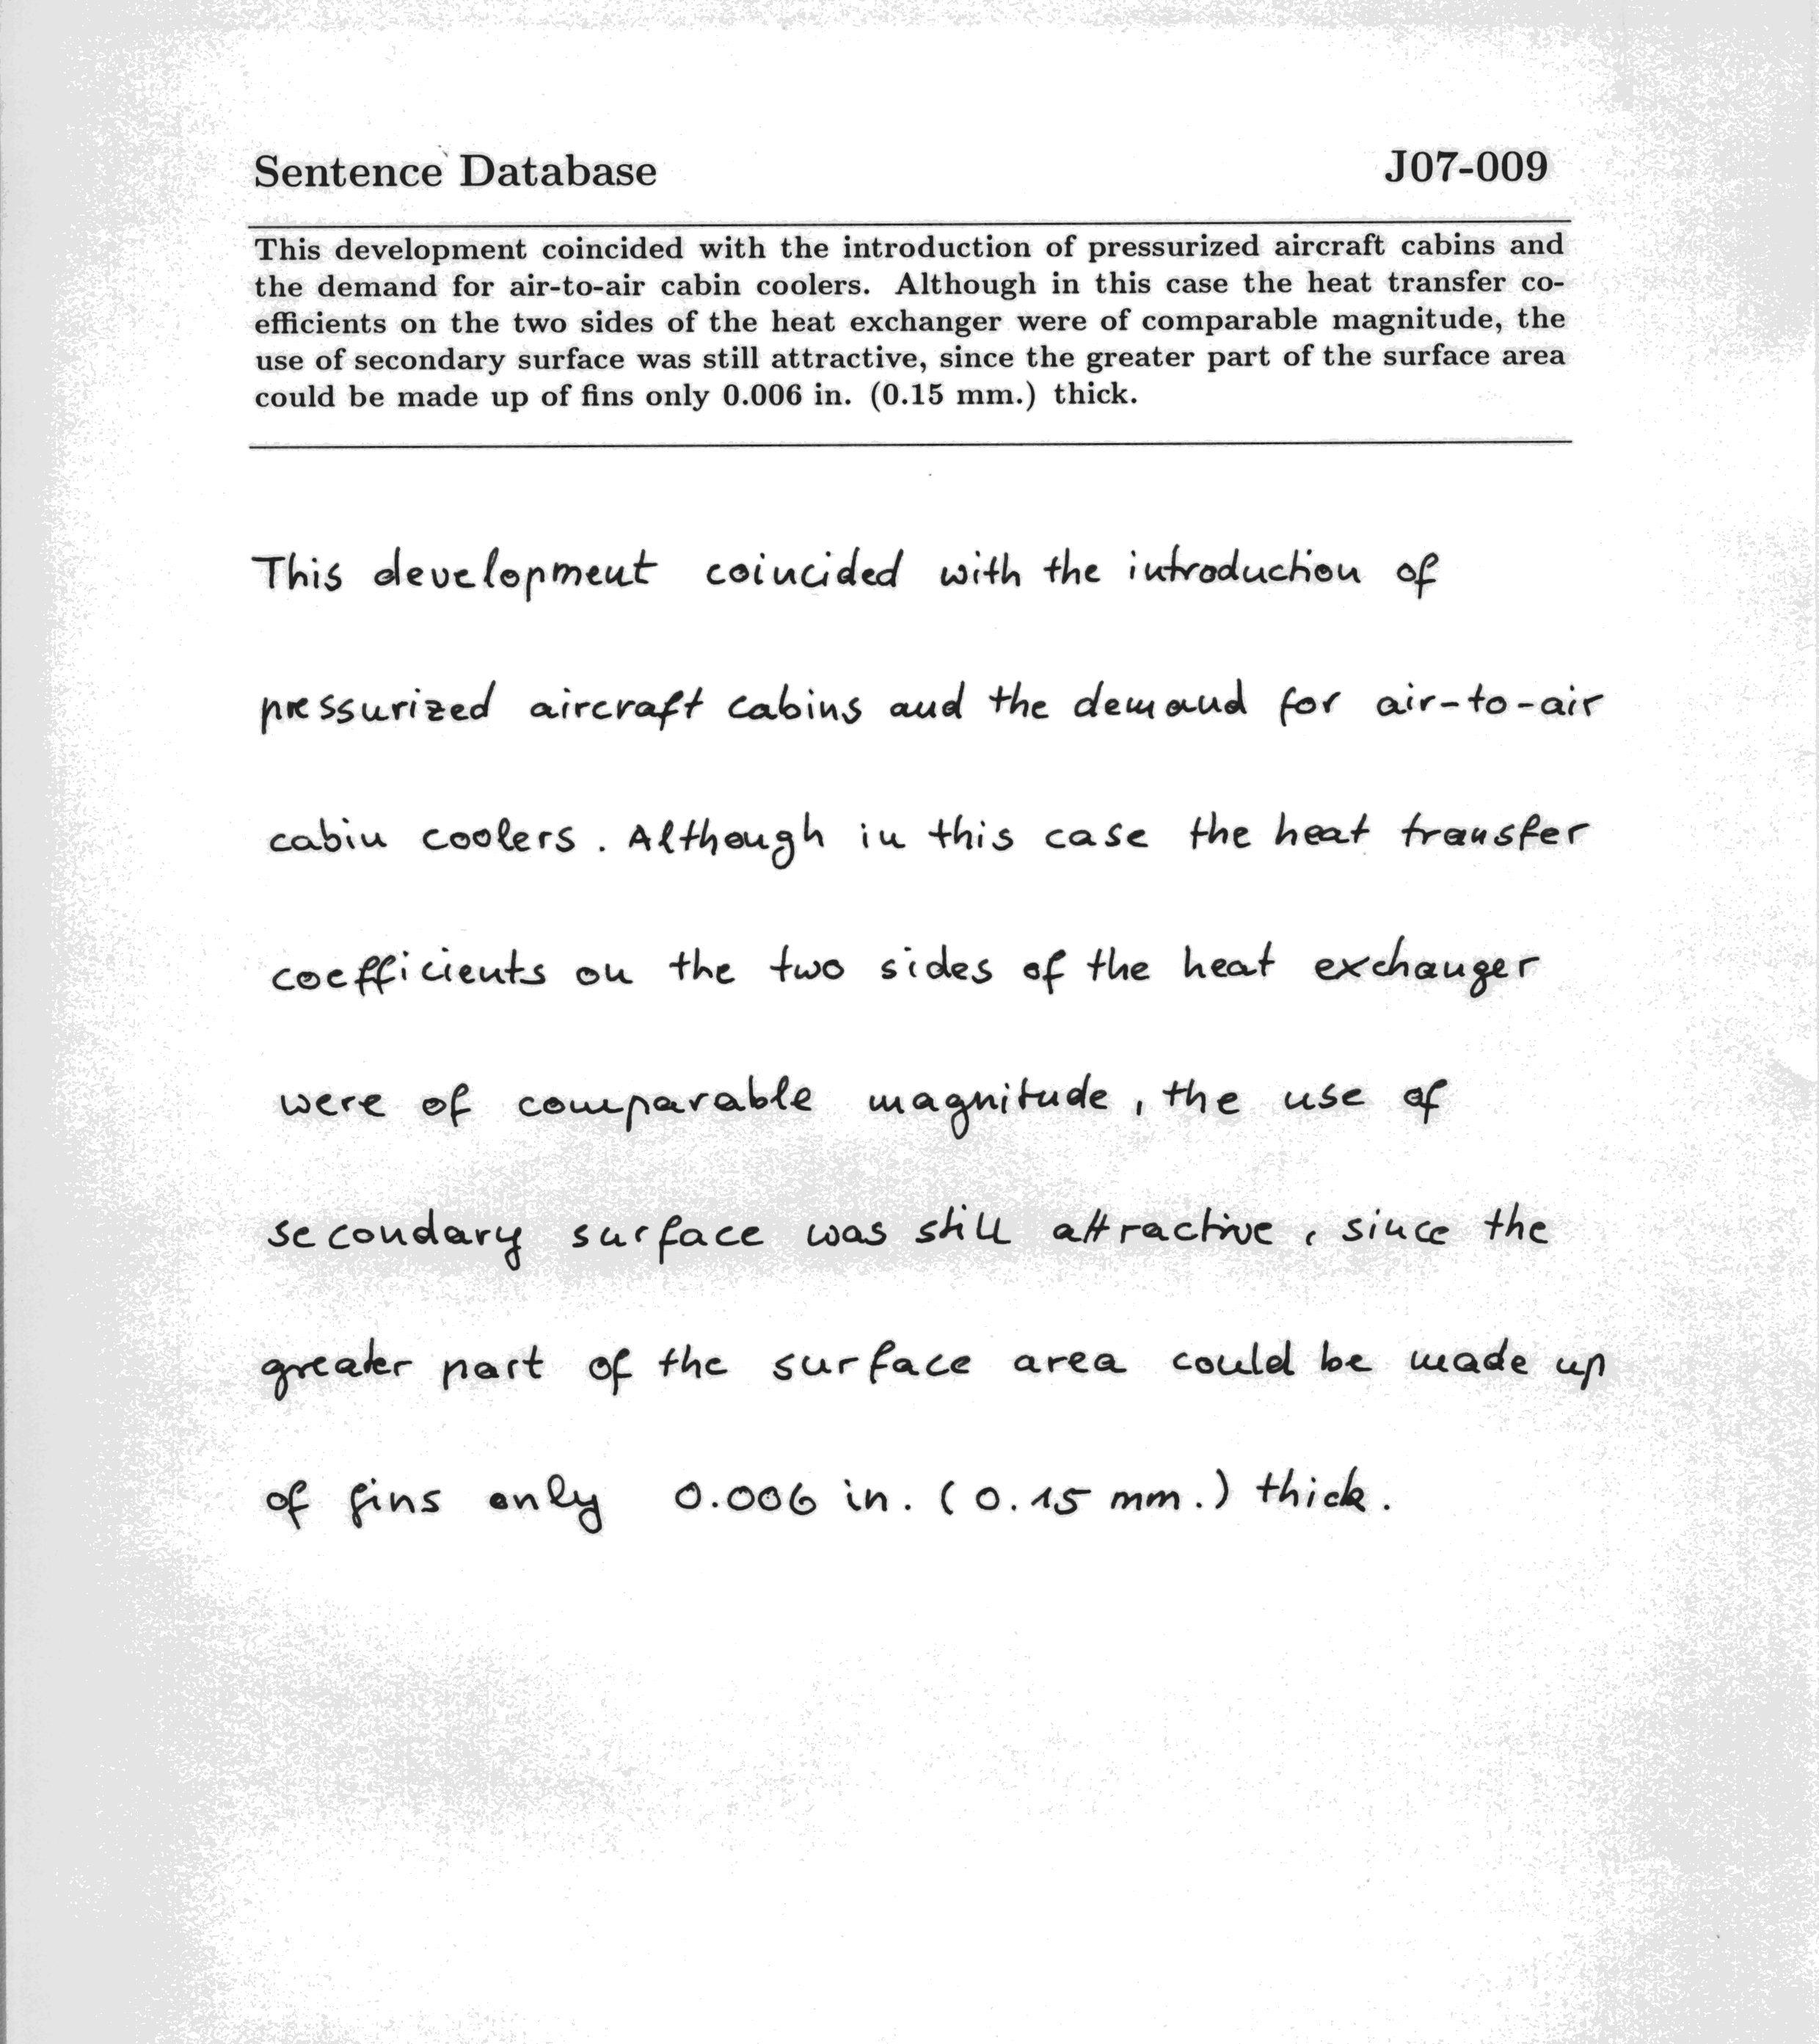 Sentence Database J07-009
This development coincided with the introduction of pressurized aircraft cabins and
the demand for air-to-air cabin coolers. Although in this case the heat transfer co-
efficients on the two sides of the heat exchanger were of comparable magnitude, the
use of secondary surface was still attractive, since the greater part of the surface area
could be made up of fins only 0.006 in. (0.15 mm.) thick.
This development coincided with the introduction of
pressurized aircraft cabins and the demand for air-to-air
cabin coolers. Although in this case the heat transfer
coefficients on the two sides of the heat exchanger
were of comparable magnitude, the use of
secondary surface was still attractive, since the
greater part of the surface area could be made up
of fins only 0.006 in. (0.15 mm.) thick.